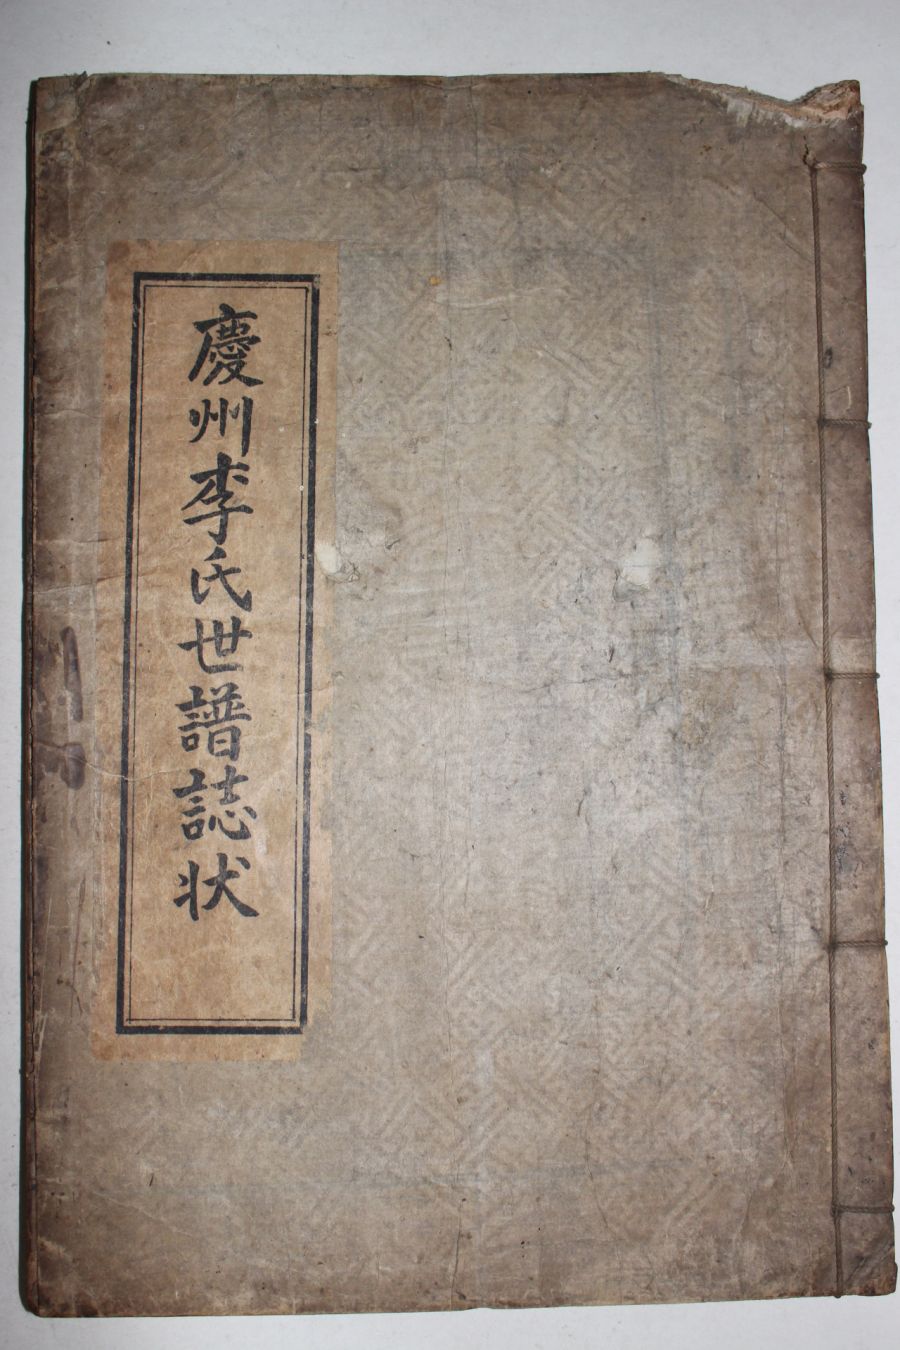 慶州李氏世譜誌狀